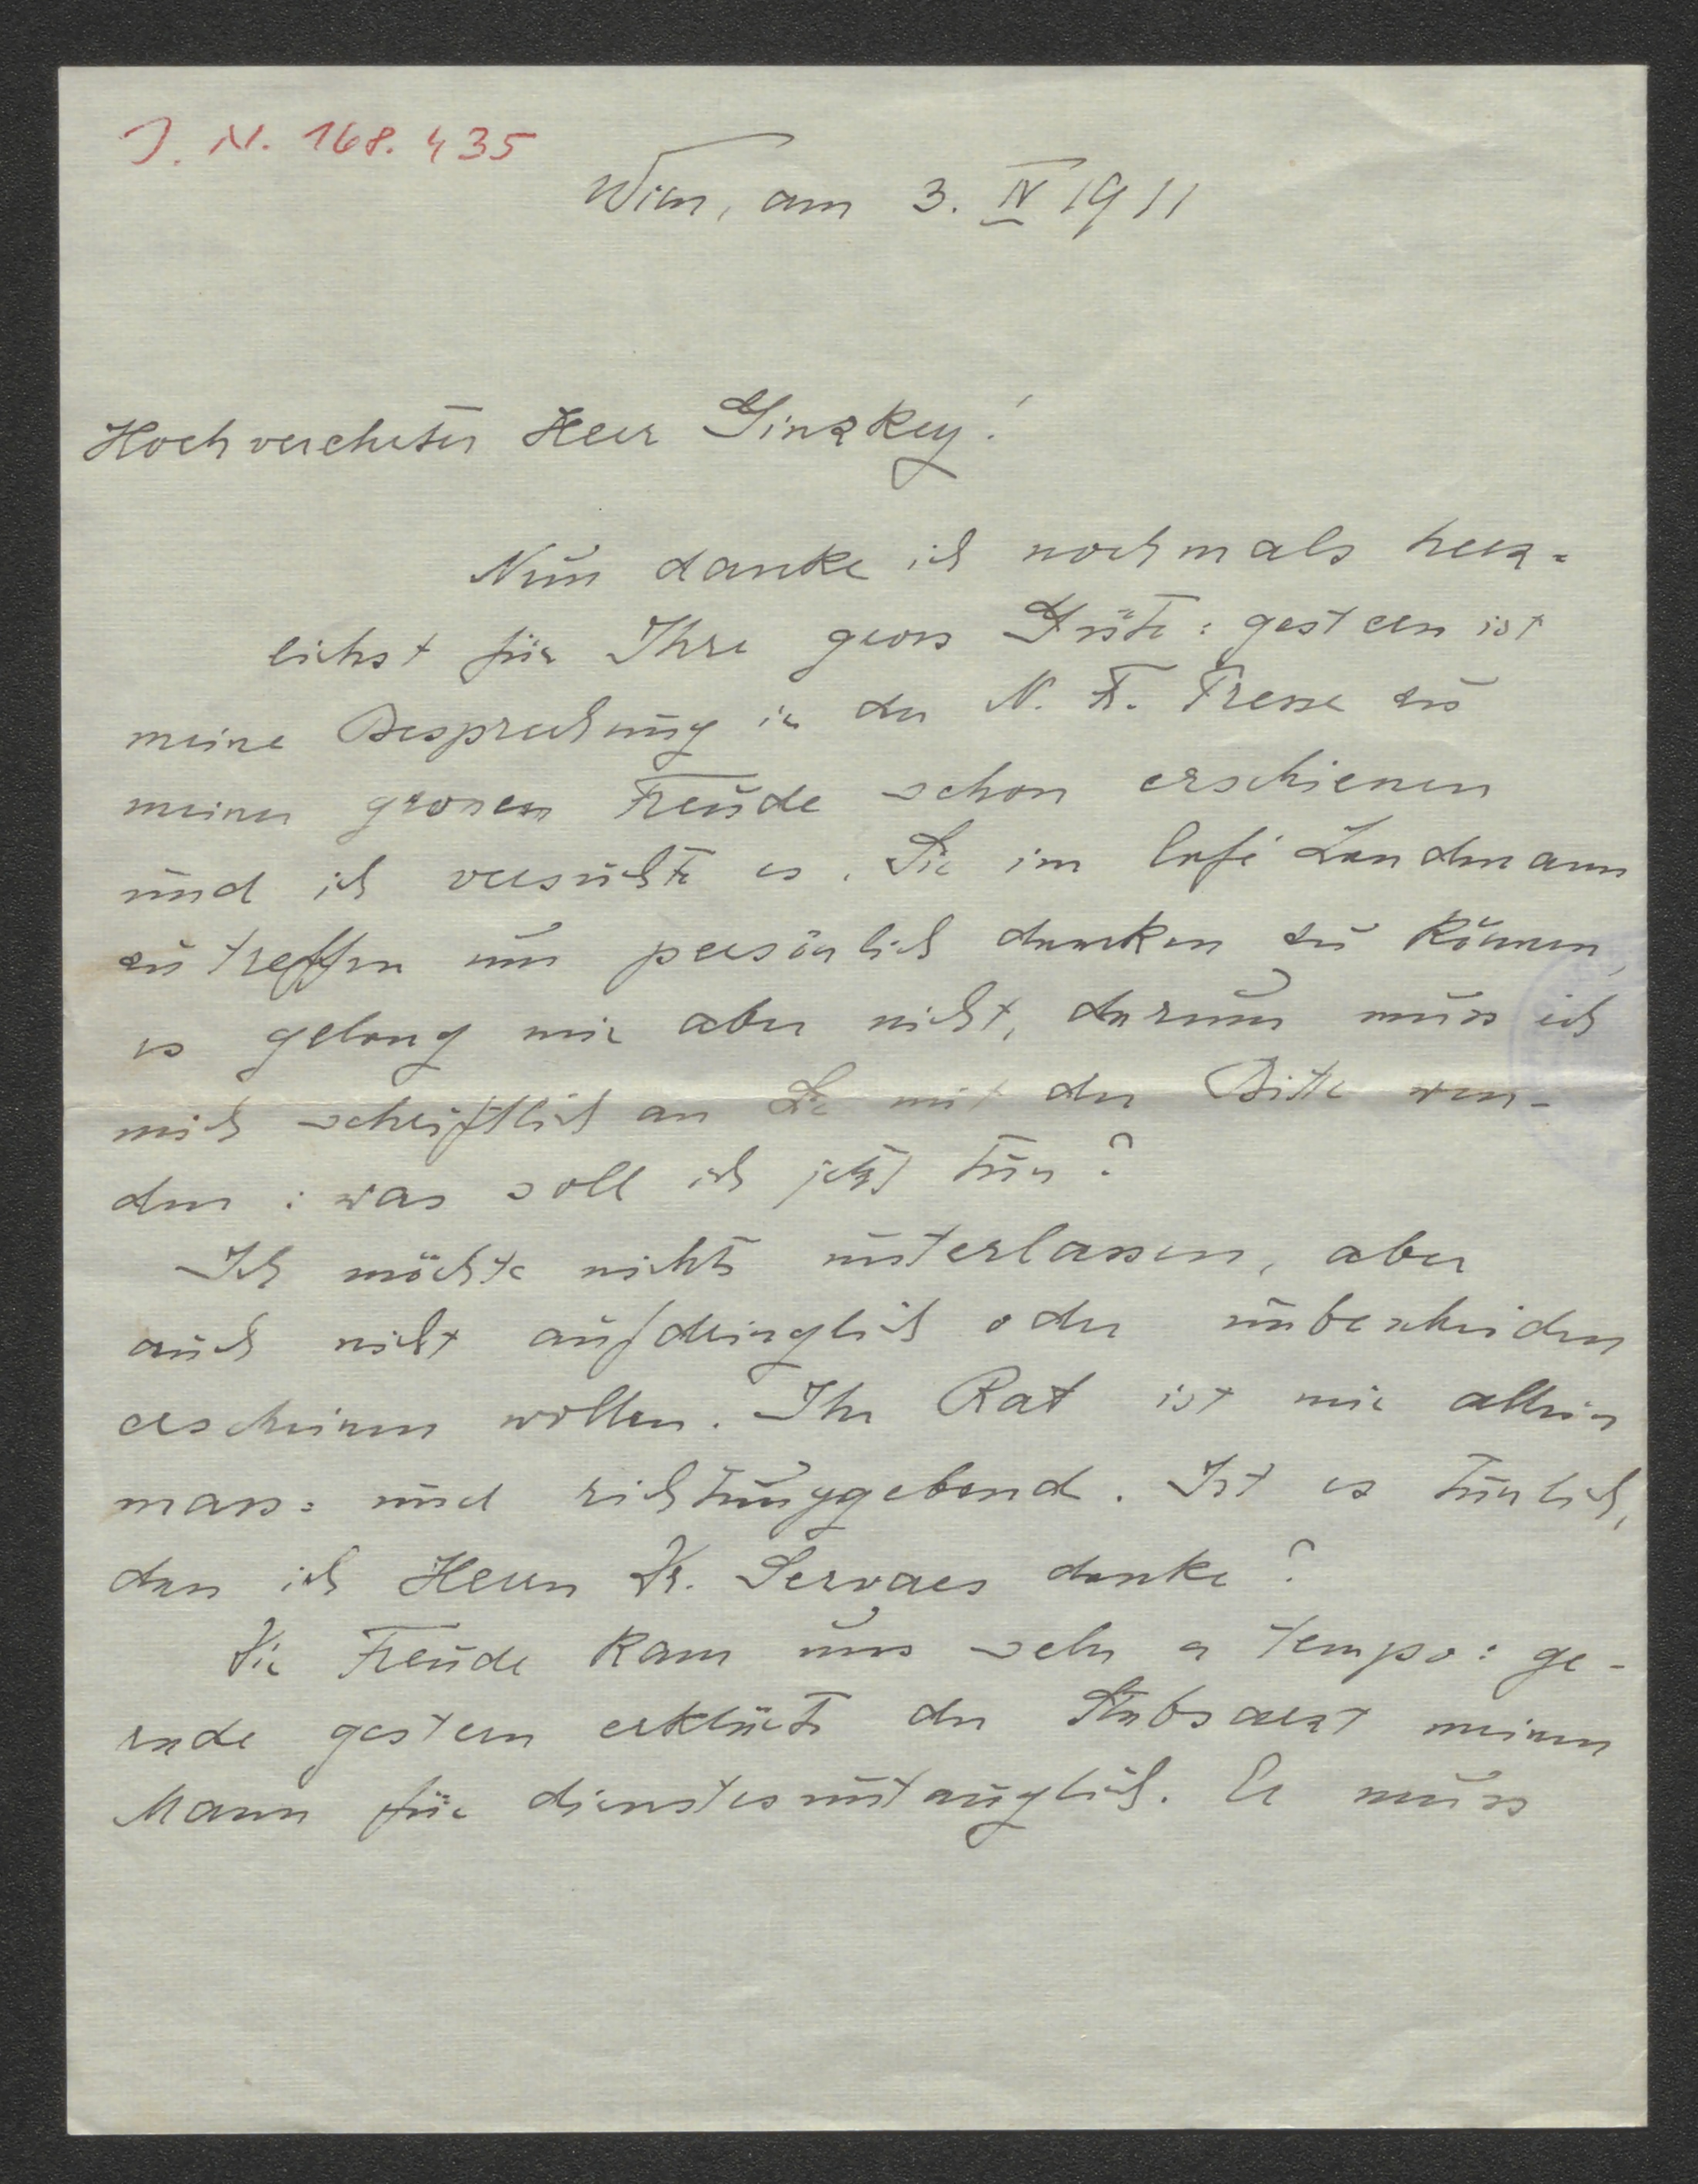 J. N. 168.435
Wien, am 3. IV 1911
Hochverehrter Herr Ginzkey!
Nun danke ich nochmals herz=
lichst für Ihre gross Güte: gestern ist
meine Besprechung in der N. F. Presse zu
meiner grossen Freude schon erschienen
und ich versuchte es, Sie im Café Landmann
zu treffen um persönlich danken zu können,
es gelang mir aber nicht, darum muss ich
mich schriftlich an Sie mit der Bitte wen-
den: was soll ich jetzt tun?
Ich möchte nichts unterlassen, aber
auch nicht aufdringlich oder unbescheiden
erscheinen wollen. Ihr Rat ist mir allein
mass= und richtunggebend. Ist es tunlich,
dass ich Herrn Dr. Servaes danke?
Die Freude kam uns sehr a tempo: ge-
rade gestern erklärte der Stabsarzt meinen
Mann für dienstesuntauglich. Er muss